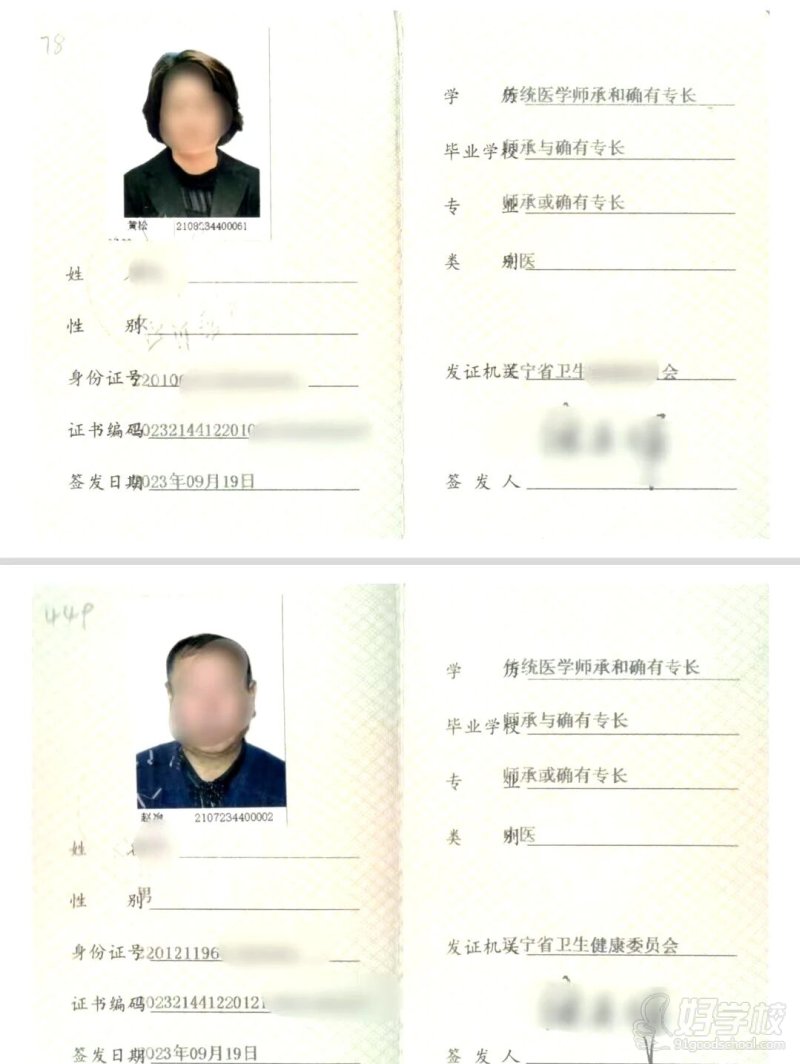 78
学 历 传统医学师承和确有专长
毕业学校 师承与确有专长
专 业 师承或确有专长
类 别 中医
黄松 2108234400061
姓
性 别 女
身份证号 220106
证书编码 20232144122010
签发日期 2023年09月19日
发证机关 辽宁省卫生 会
签 发 人
449
学 历 传统医学师承和确有专长
毕业学校 师承与确有专长
专 业 师承或确有专长
类 别 中医
2107234400002
姓 名
性 别 男
身份证号 220121196
证书编码 202321441220121
签发日期 2023年09月19日
发证机关 辽宁省卫生健康委员会
签 发 人
好学校
91goodschool.com